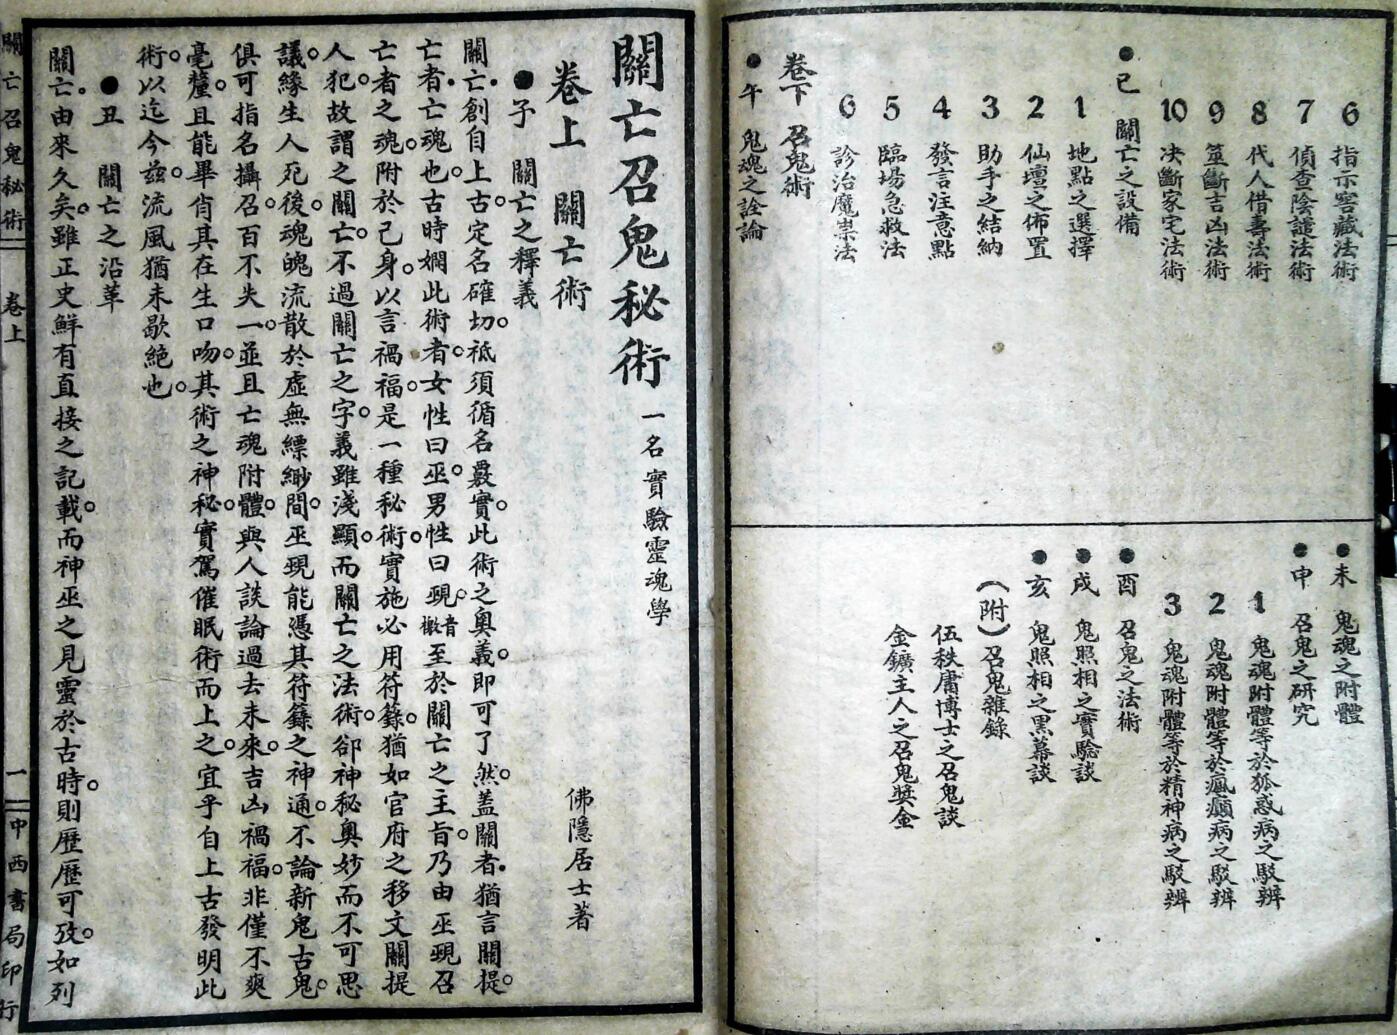 6 指示窖藏法術
7 偵查陰譴法術
8 代人借壽法術
9 筮斷吉凶法術
10 决斷家宅法術
●巳 關亡之設備
1 地點之選擇
2 仙壇之佈置
3 助手之結納
4 發言注意點
5 臨場急救法
6 診治魔祟法
卷下 召鬼術
●午 鬼魂之詮論
●未 鬼魂之附體
●申 召鬼之研究
1 鬼魂附體等於狐惑病之駁辨
2 鬼魂附體等於瘋癲病之駁辨
3 鬼魂附體等於精神病之駁辨
●酉 召鬼之法術
●戌 鬼照相之實驗談
●亥 鬼照相之黑幕談
(附)召鬼雜錄
伍秩庸博士之召鬼談
金鑛主人之召鬼獎金
關亡召鬼秘術 一名實驗靈魂學
佛隱居士著
卷上 關亡術
●子 關亡之釋義
關亡創自上古。定名確切。祗須循名覈實。此術之奧義。即可了然。蓋關者。猶言關提。
亡者。亡魂也。古時嫻此術者。女性曰巫。男性曰覡。音檄至於關亡之主旨。乃由巫覡召
亡者之魂。附於己身。以言禍福。是一種秘術。實施必用符籙。猶如官府之移文關提
人犯。故謂之關亡。不過關亡之字。義雖淺顯。而關亡之法術。郤神秘奧妙而不可思
議。緣生人死後。魂魄流散於虛無縹緲間。巫覡能憑其符籙之神通。不論新鬼古鬼。
俱可指名攝召。百不失一。並且亡魂附體。與人談論過去未來。吉凶禍福。非僅不爽
毫釐。且能畢肖其在生口吻。其術之神秘。實駕催眠術而上之。宜乎自上古發明此
術。以迄今茲。流風猶未歇絕也。
●丑 關亡之沿革
關亡。由來久矣。雖正史鮮有直接之記載。而神巫之見靈於古時。則歷歷可攷。如列
關亡召鬼秘術 卷上 一 中西書局印行